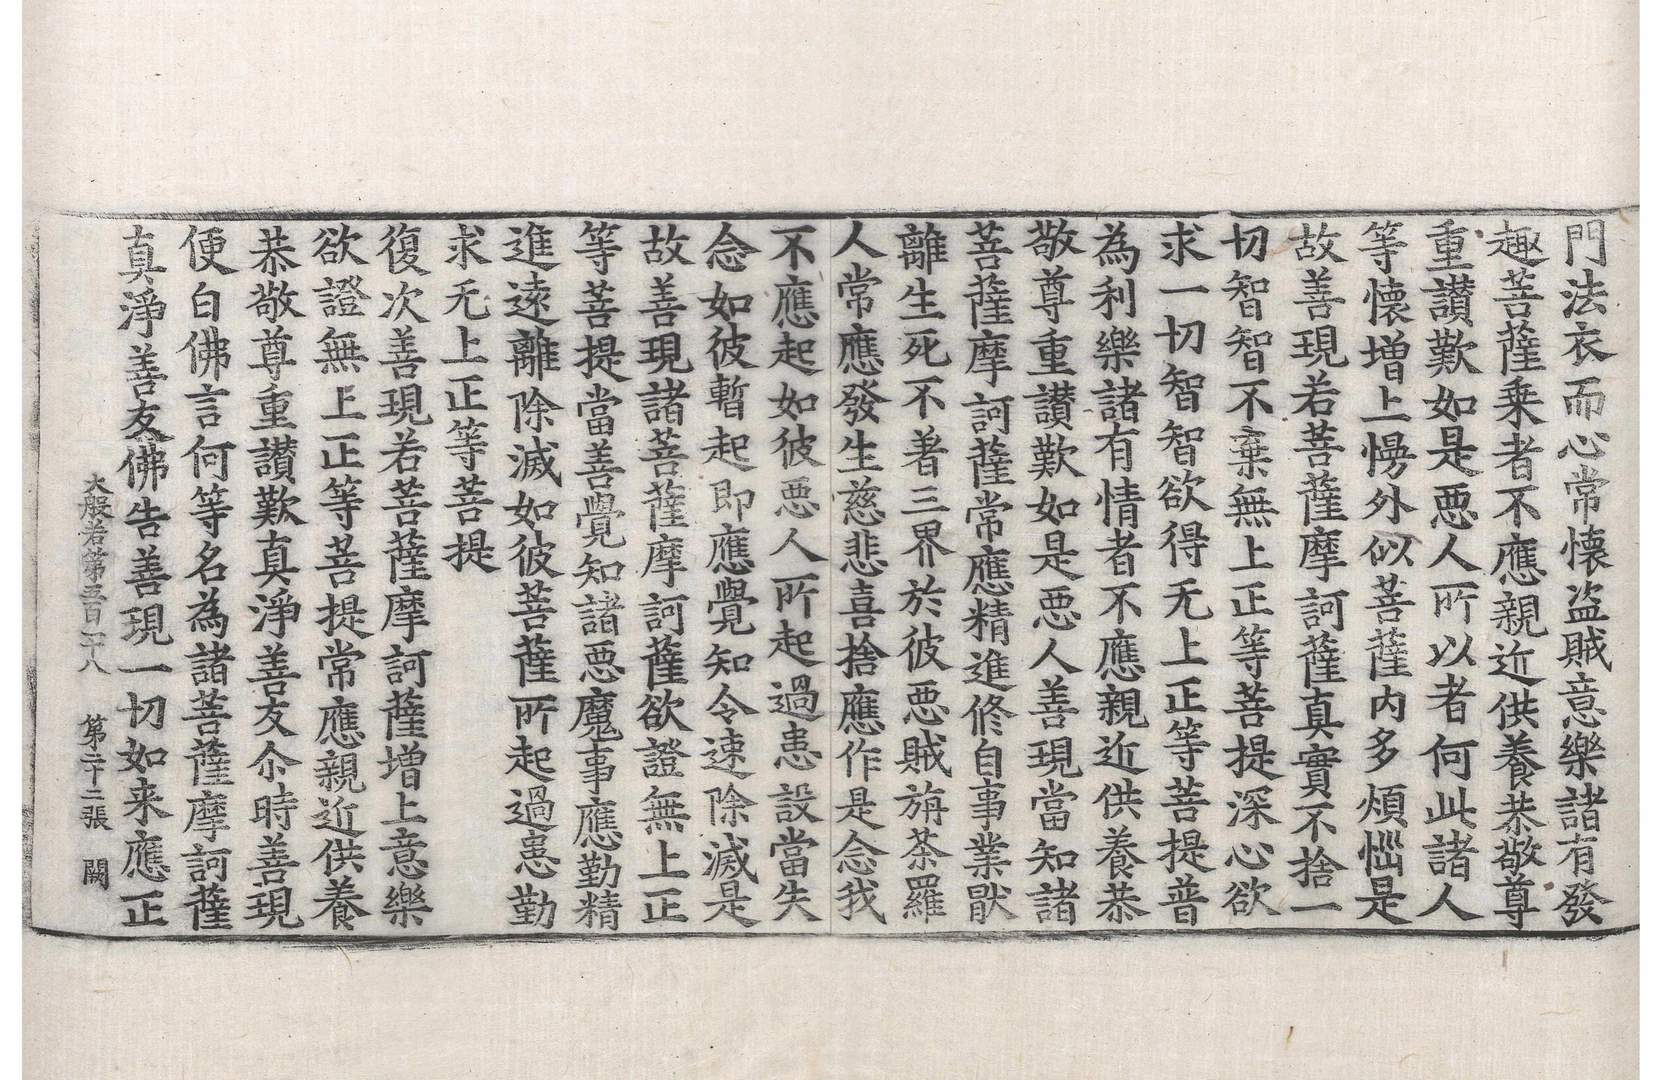 門法衣而心常懷盗賊意樂諸有發
趣菩薩乗者不應親近供養恭敬尊
重讃歎如是惡人所以者何此諸人
等懷增上慢外似菩薩内多煩惱是
故善現若菩薩摩訶薩真實不捨一
切智智不棄無上正等菩提深心欲
求一切智智欲得无上正等菩提普
為利樂諸有情者不應親近供養恭
敬尊重讃歎如是惡人善現當知諸
菩薩摩訶薩常應精進修自事業猒
離生死不著三界於彼惡賊旃荼羅
人常應發生慈悲喜捨應作是念我
不應起如彼惡人所起過患設當失
念如彼暫起即應覺知令速除滅是
故善現諸菩薩摩訶薩欲證無上正
等菩提當善覺知諸惡魔事應勤精
進遠離除滅如彼菩薩所起過患勤
求无上正等菩提
復次善現若菩薩摩訶薩增上意樂
欲證無上正等菩提常應親近供養
恭敬尊重讃歎真淨善友尒時善現
便白佛言何等名為諸菩薩摩訶薩
真淨善友佛告善現一切如来應正
大般若第五百四十八 第二十二張 闕